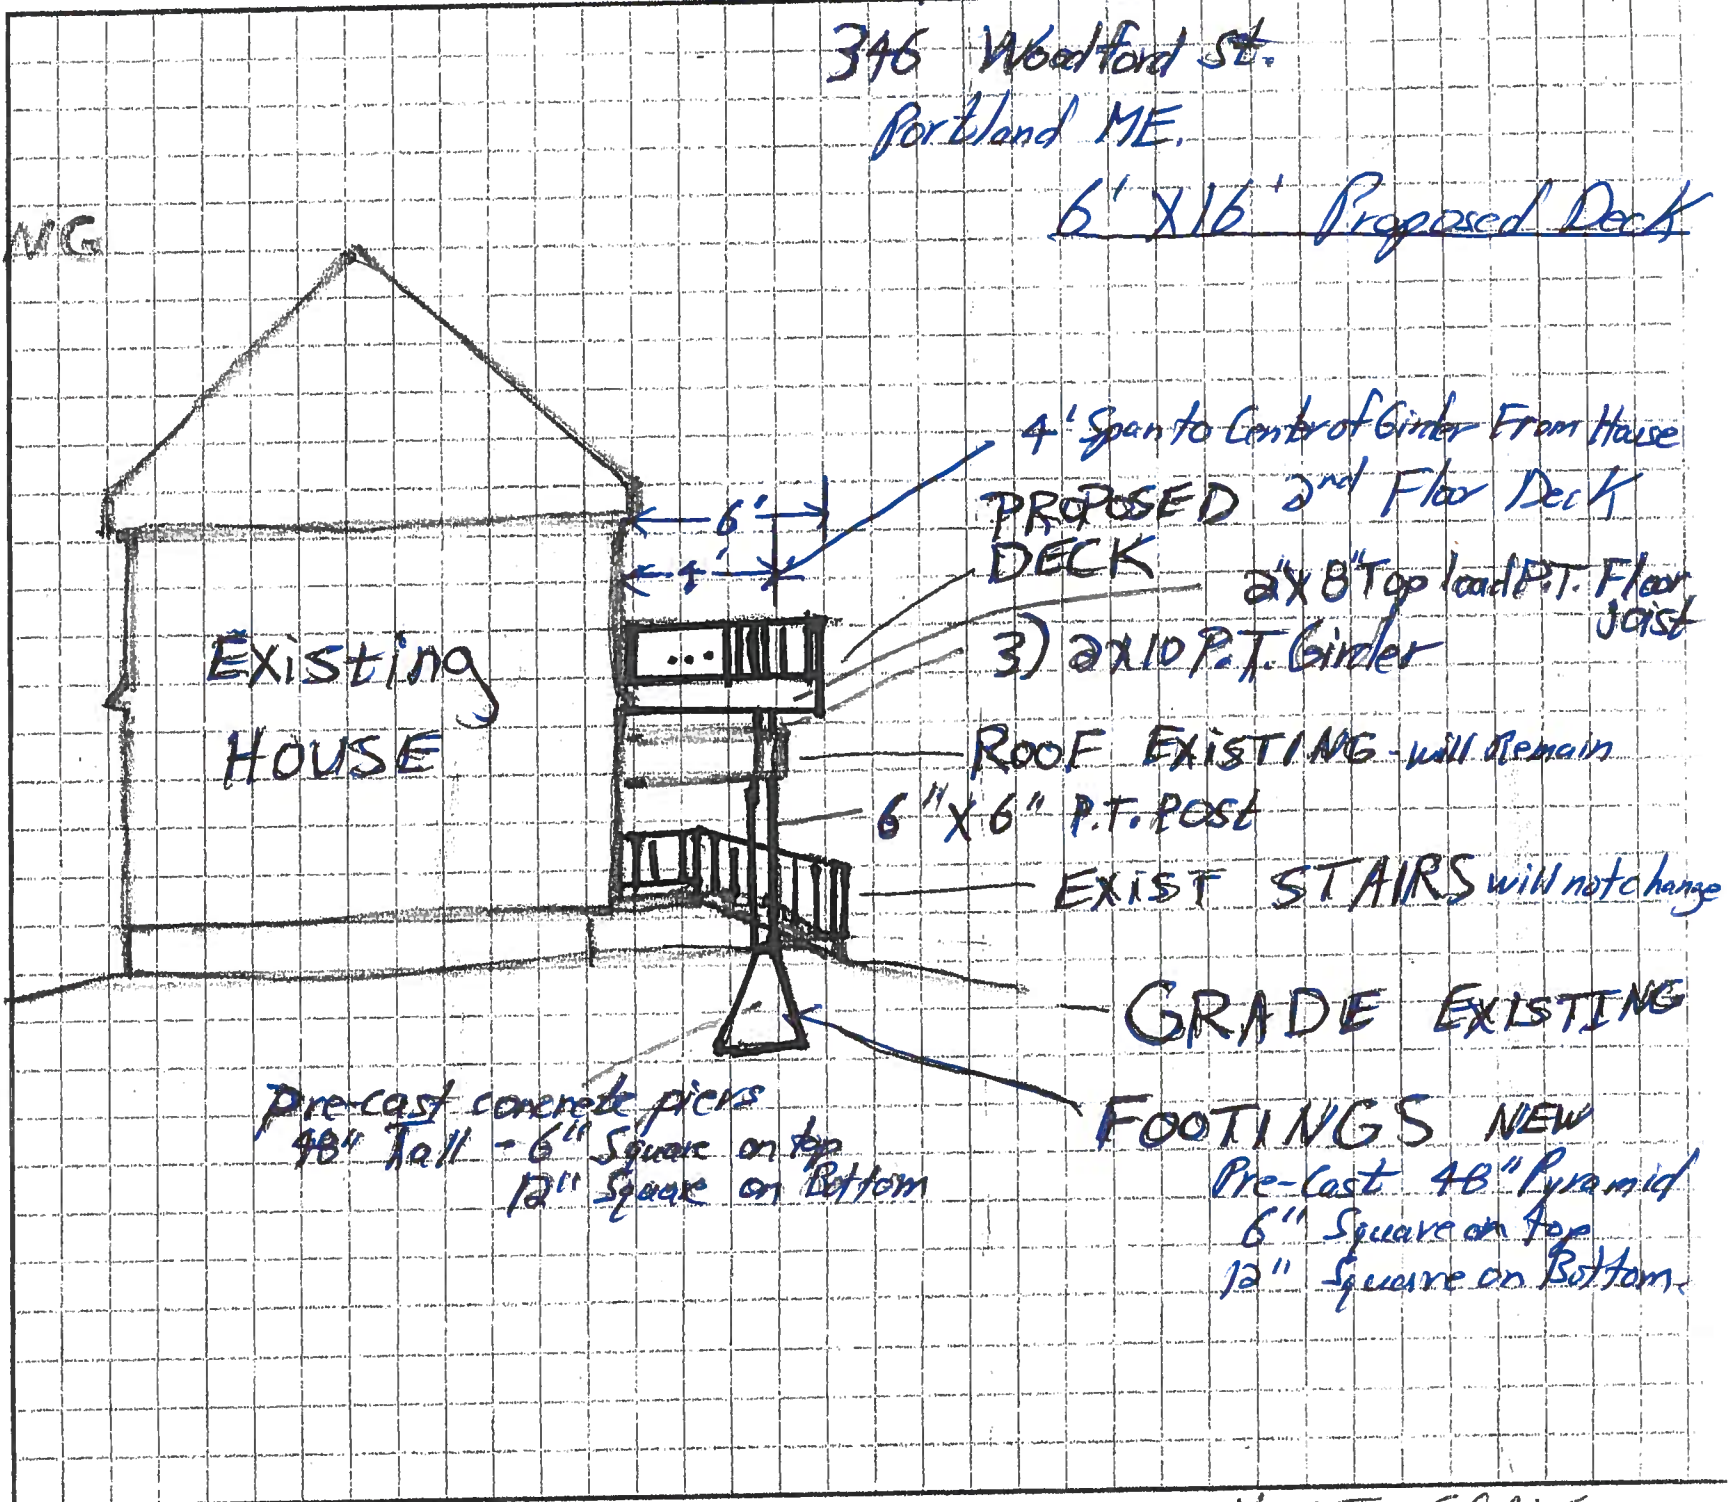 346 Woodford St.
Portland ME.
6' X 16' Proposed Deck
NG
4' Span to Center of Girder From House
6'
PROPOSED 2nd Floor Deck
DECK
4'
2"X8" Top load P.T. Floor
joist
Existing
3) 2x10 P.T. Girder
HOUSE
ROOF EXISTING - will Remain
6" X 6" P.T. Post
EXIST STAIRS will not change
GRADE EXISTING
Pre-cast concrete piers
48" Tall - 6" Square on top
12" Square on Bottom
FOOTINGS NEW
Pre-Cast 48" Pyramid
6" Square on top
12" Square on Bottom.